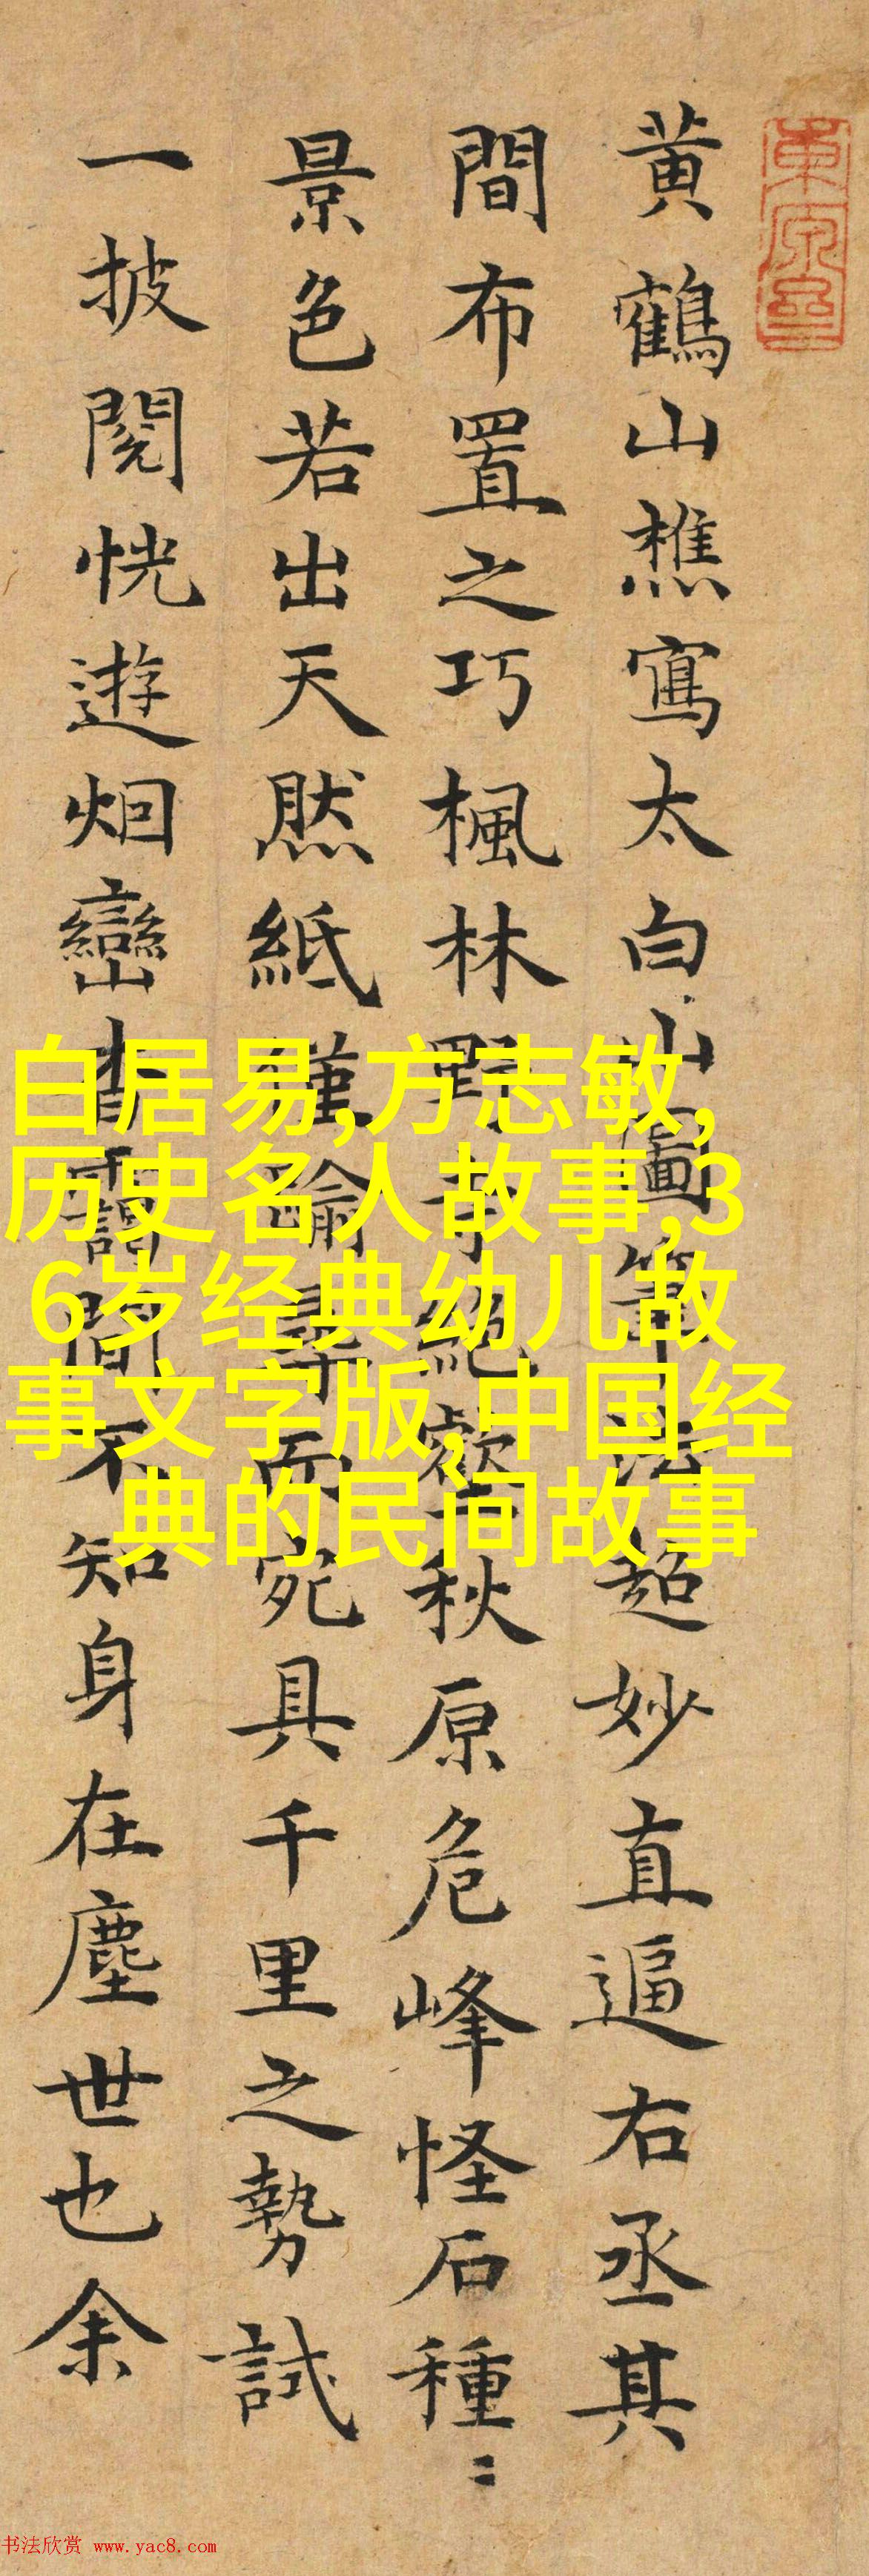 黄鶴山樵寫太白山圖筆法超妙直逼右丞其
間布置之巧楓林野寺絕壑秋原危峰怪石種〻
景色若出天然紙僅踰尋而宛具千里之勢試
一披閱恍遊烟巒杳靄間不知身在塵世也余
白居易,方志敏,
历史名人故事,3
6岁经典幼儿故
事文字版,中国经
典的民间故事
书法欣赏 www.yac8.com